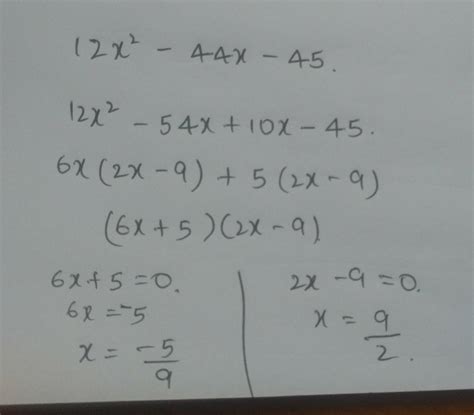 12x² - 44x - 45.
12x² - 54x + 10x - 45.
6x(2x - 9) + 5(2x - 9)
(6x + 5)(2x - 9)
6x + 5 = 0.
6x = -5
x = -5/9
2x - 9 = 0.
x = 9/2.